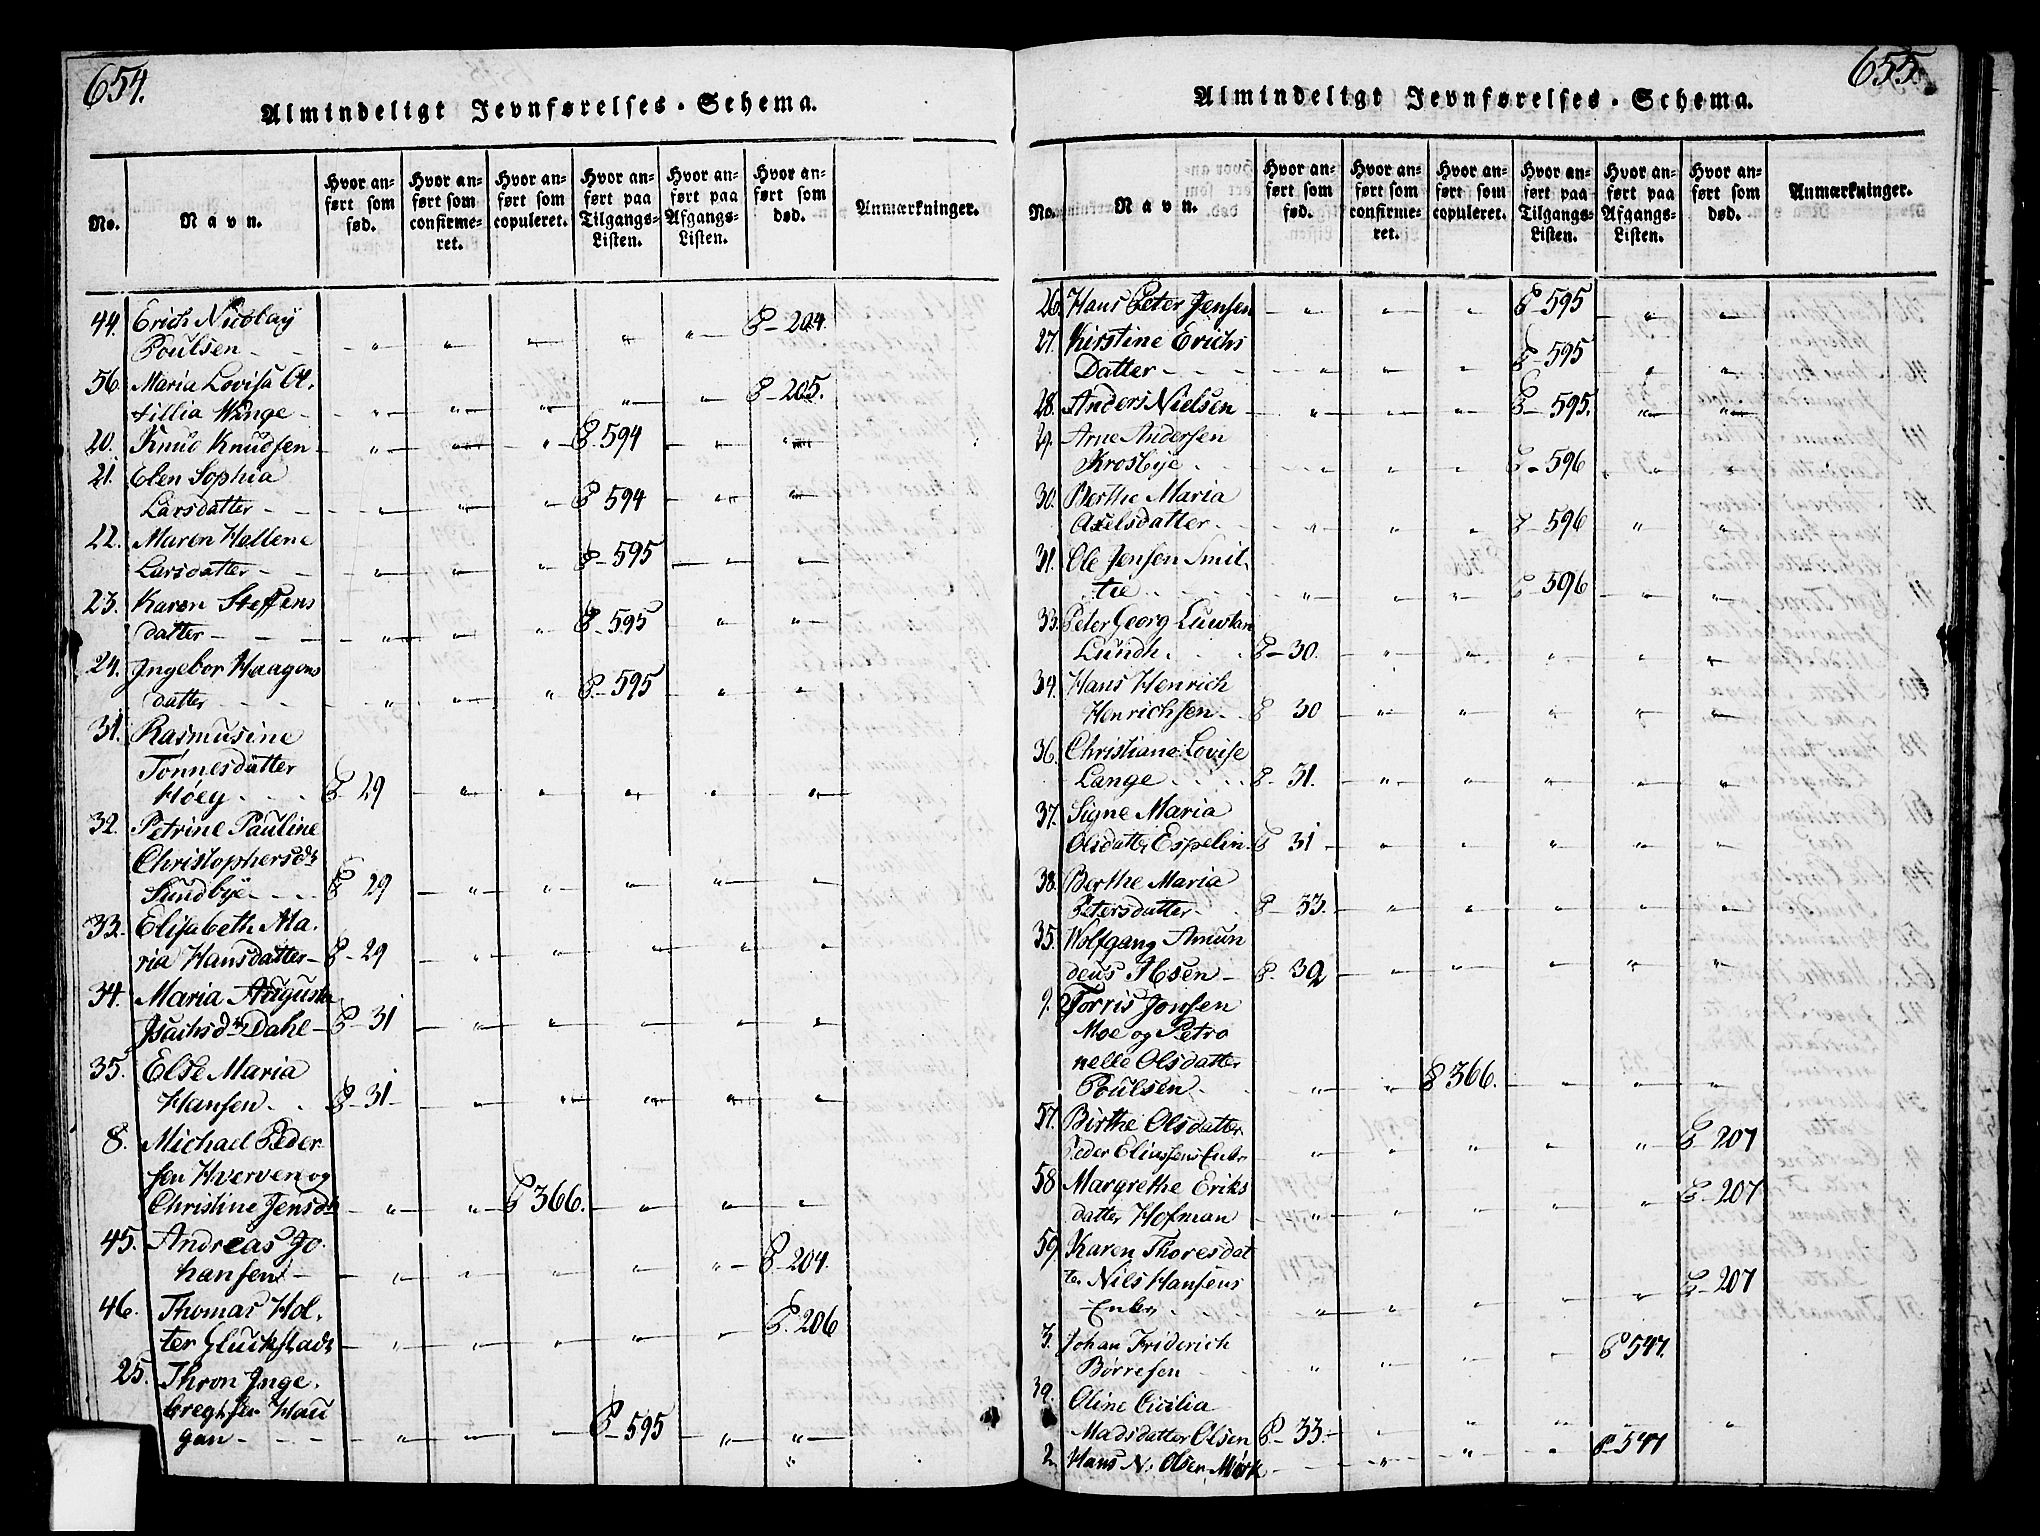 654.
Almindeligt Jevnførelses-Schema.
No.
Navn.
Hvor an-
ført som
fød.
Hvor an-
ført som
confirme-
ret.
Hvor an-
ført som
copuleret.
Hvor an-
ført paa
Tilgangs-
Listen.
Hvor an-
ført paa
Afgangs-
Listen.
Hvor an-
ført som
død.
Anmærkninger.
44. Erich Nicolay
Poulsen - - " " " " " P- 204.
56. Maria Lovisa Ot-
tillia Winge - " " " " " P- 205.
20. Knud Knudsen " " " P. 594 " "
21. Elen Sophia
Larsdatter - - " " " P 594 " "
22. Maren Hellene
Larsdatter - - " " " P- 595 " "
23. Karen Steffens
datter - - - " " " P- 595 " "
24. Ingebor Haagens
datter - - - " " " P- 595 " "
31. Rasmusine
Tönnesdatter
Höeg - - - P- 29 " " " " "
32. Petrine Pauline
Christophersdr
Sundbye - - - P 29 " " " " "
33. Elisabeth Ma-
ria Hansdatter - P- 29 " " " " "
34. Maria Augusta
Isachsdr Dahl - P- 31 " " " " "
35. Else Maria
Hansen - - P- 31 " " " " "
8. Michael Peder-
sen Hverven og
Christine Jensdr " " P 366. " " "
45. Andreas Jo-
hansen - " " " " " P. 204.
46. Thomas Hol-
ter Gluckstadt " " " " " P. 206
25. Thron Inge-
breghsen Hau
gan - - - " " " P- 595 " "
655.
Almindeligt Jevnførelses-Schema.
No.
Navn.
Hvor an-
ført som
fød.
Hvor an-
ført som
confirme-
ret.
Hvor an-
ført som
copuleret.
Hvor an-
ført paa
Tilgangs-
Listen.
Hvor an-
ført paa
Afgangs-
Listen.
Hvor an-
ført som
død.
Anmærkninger.
26. Hans Peter Jensen " " " P- 595 " "
27. Kirstine Erichs
Datter - - " " " P- 595 " "
28. Anders Nielsen - " " " P- 595. " "
29. Arne Andersen
Krosbye - " " " P- 596 " "
30. Berthe Maria
Axelsdatter - - " " " P- 596 " "
31. Ole Jensen Smit-
tie - - - " " " P 596 " "
33. Peter Georg
Lundh. - - P- 30. " " " " "
34. Hans Henrich
Henrichsen - P 30 " " " " "
36. Christiane Lovise
Lange - - - P- 31. " " " " "
37. Signe Maria
Olsdatter Espelin P 31 " " " " "
38. Berthe Maria
Petersdatter - P- 33. " " " " "
35. Wolfgang Amun
deus Ibsen - P. 32 " " " " "
9. Torris Jonsen
Moe og Petro
nelle Olsdatter
Poulsen - " " P 366. " " "
57. Birthe Olsdatter
Peder Eliassens Enke " " " " " P 207
58 Margrethe Eriks
datter Hofman " " " " " P- 207
59. Karen Thoresdat
ter Nils Hansens
Enke - - " " " " " P- 207
3. Johan Friderich
Børresen - " " " " P 547.
39. Oline Cicilia
Madsdatter Olsen P- 33. " " " " "
2. Hans N: Olsen Mørk " " " P- 547